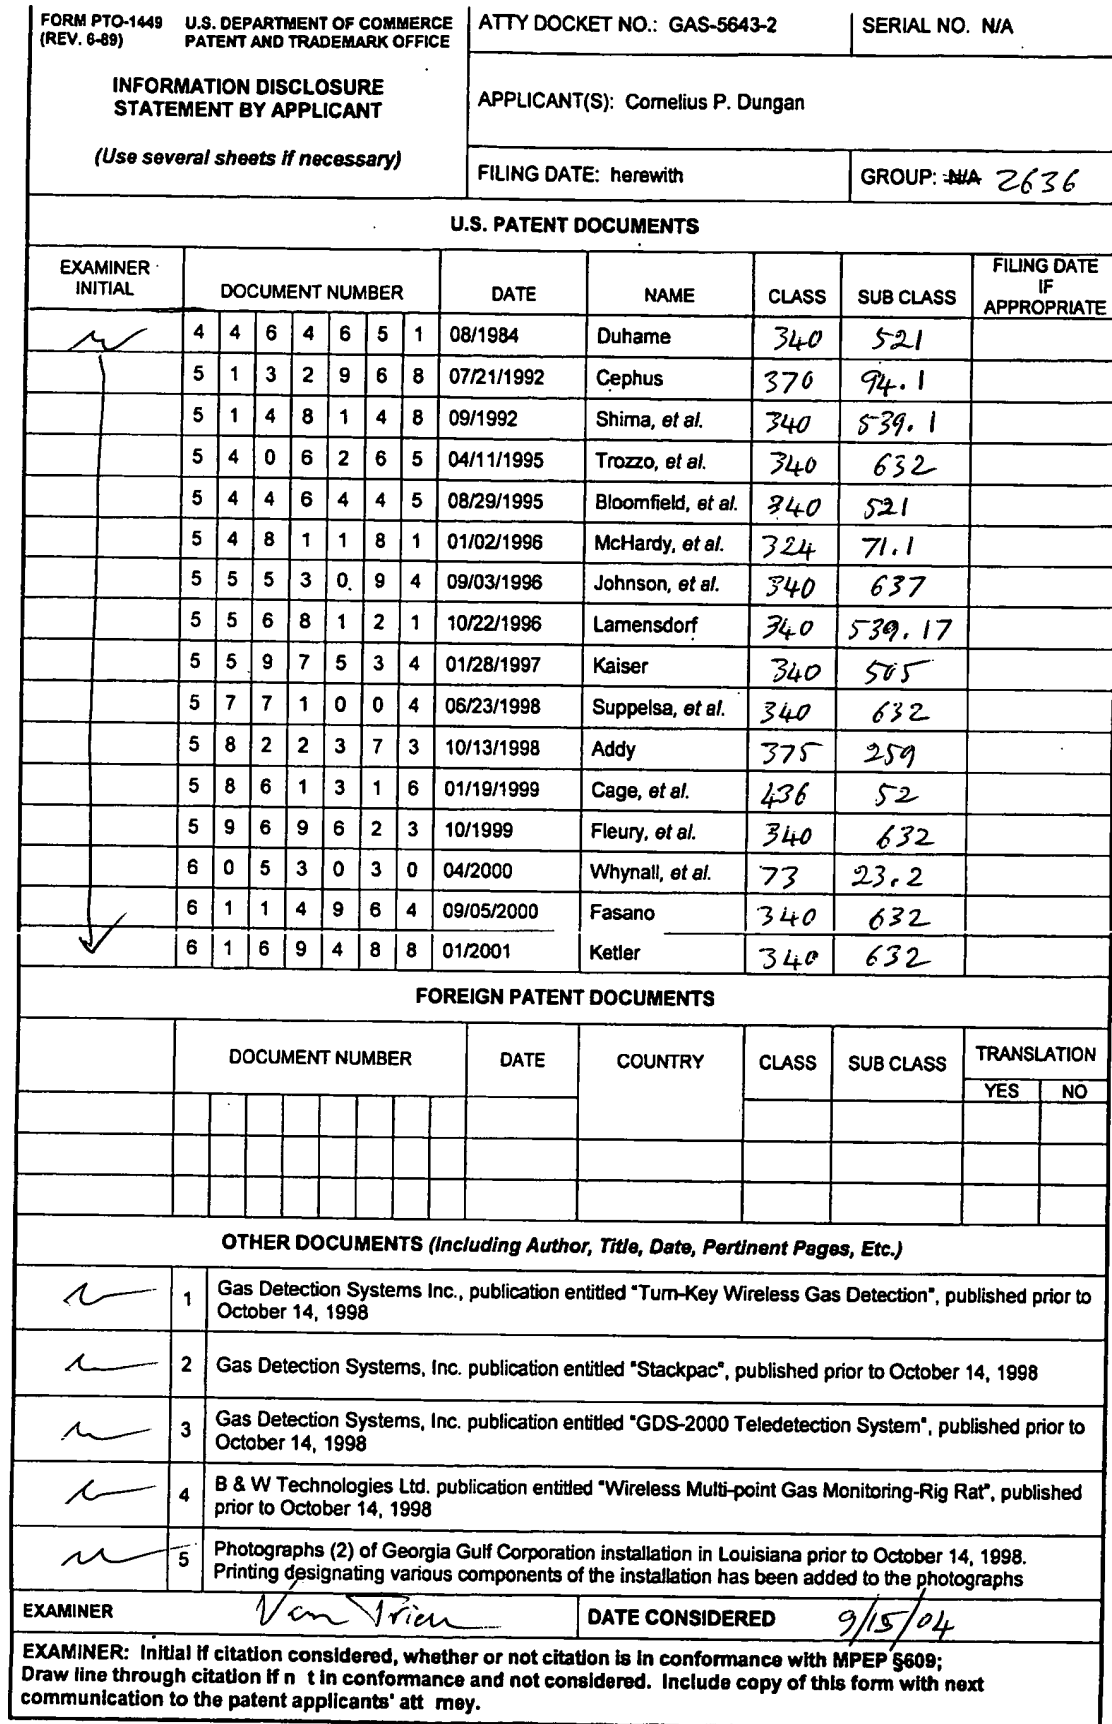 FORM PTO-1449 U.S. DEPARTMENT OF COMMERCE
(REV. 6-89) PATENT AND TRADEMARK OFFICE
ATTY DOCKET NO.: GAS-5643-2
SERIAL NO. N/A
INFORMATION DISCLOSURE
STATEMENT BY APPLICANT
(Use several sheets if necessary)
APPLICANT(S): Cornelius P. Dungan
FILING DATE: herewith
GROUP: N/A 2636
U.S. PATENT DOCUMENTS
EXAMINER INITIAL DOCUMENT NUMBER DATE NAME CLASS SUB CLASS FILING DATE IF APPROPRIATE
4 4 6 4 6 5 1 08/1984 Duhame 340 521
5 1 3 2 9 6 8 07/21/1992 Cephus 370 94.1
5 1 4 8 1 4 8 09/1992 Shima, et al. 340 539.1
5 4 0 6 2 6 5 04/11/1995 Trozzo, et al. 340 632
5 4 4 6 4 4 5 08/29/1995 Bloomfield, et al. 340 521
5 4 8 1 1 8 1 01/02/1996 McHardy, et al. 324 71.1
5 5 5 3 0 9 4 09/03/1996 Johnson, et al. 340 637
5 5 6 8 1 2 1 10/22/1996 Lamensdorf 340 539.17
5 5 9 7 5 3 4 01/28/1997 Kaiser 340 505
5 7 7 1 0 0 4 06/23/1998 Suppelsa, et al. 340 632
5 8 2 2 3 7 3 10/13/1998 Addy 375 259
5 8 6 1 3 1 6 01/19/1999 Cage, et al. 436 52
5 9 6 9 6 2 3 10/1999 Fleury, et al. 340 632
6 0 5 3 0 3 0 04/2000 Whynall, et al. 73 23.2
6 1 1 4 9 6 4 09/05/2000 Fasano 340 632
6 1 6 9 4 8 8 01/2001 Ketler 340 632
FOREIGN PATENT DOCUMENTS
DOCUMENT NUMBER DATE COUNTRY CLASS SUB CLASS TRANSLATION
YES NO
OTHER DOCUMENTS (Including Author, Title, Date, Pertinent Pages, Etc.)
1 Gas Detection Systems Inc., publication entitled "Turn-Key Wireless Gas Detection", published prior to
October 14, 1998
2 Gas Detection Systems, Inc. publication entitled "Stackpac", published prior to October 14, 1998
3 Gas Detection Systems, Inc. publication entitled "GDS-2000 Teledetection System", published prior to
October 14, 1998
4 B & W Technologies Ltd. publication entitled "Wireless Multi-point Gas Monitoring-Rig Rat", published
prior to October 14, 1998
5 Photographs (2) of Georgia Gulf Corporation installation in Louisiana prior to October 14, 1998.
Printing designating various components of the installation has been added to the photographs
EXAMINER Van Trieu DATE CONSIDERED 9/15/04
EXAMINER: Initial if citation considered, whether or not citation is in conformance with MPEP §609;
Draw line through citation if n t in conformance and not considered. Include copy of this form with next
communication to the patent applicants' att mey.